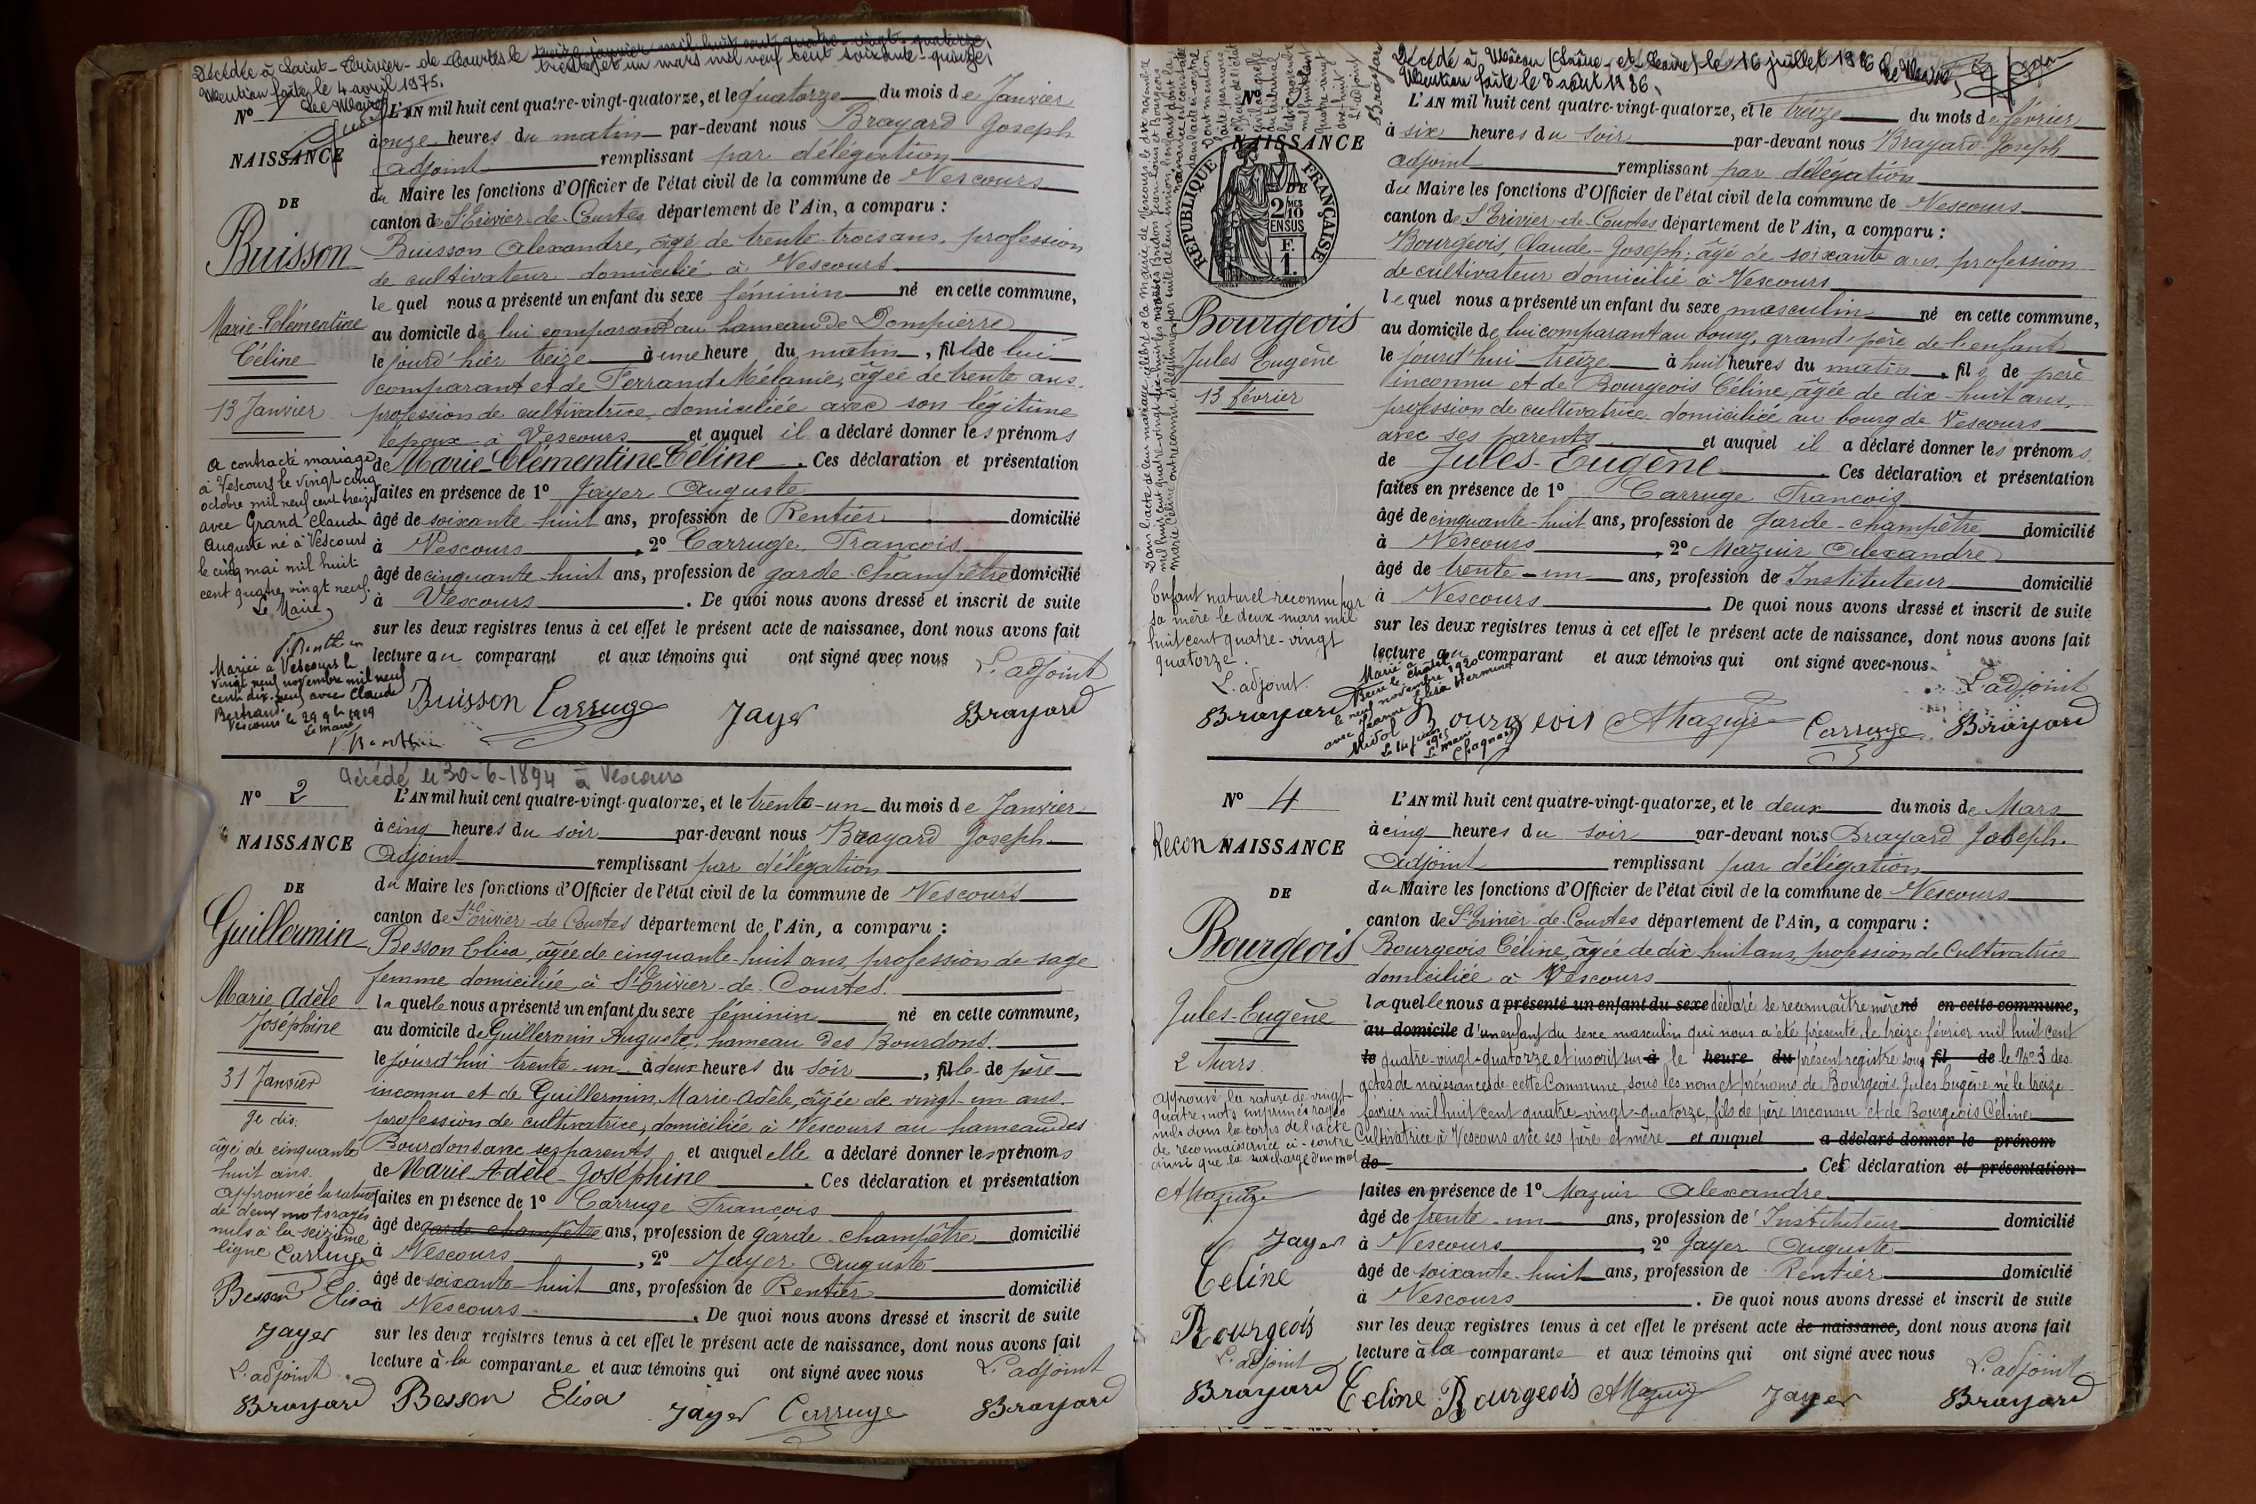 Décédée à Saint-Trivier-de-Courtes le treize janvier mil huit cent quatre-vingt-quatorze,
trente et un mars mil neuf cent soixante-quinze.
Mention faite le 4 avril 1975.
Le Maire
N°
NAISSANCE
DE
Buisson
Marie-Clémentine
Céline
13 Janvier
A contracté mariage
à Vescours le vingt cinq
octobre mil neuf cent treize
avec Grand Claude
Auguste né à Vescours
le cinq mai mil huit
cent quatre vingt neuf.
Le Maire
Mariée à Vescours le
vingt neuf novembre mil neuf
cent dix-neuf avec Claude
Bertrand
Vescours le 29 9b 1919
Le maire
L'AN mil huit cent quatre-vingt-quatorze, et le quatorze du mois de Janvier
à onze heures du matin par-devant nous Brayard Joseph
adjoint remplissant par délégation
du Maire les fonctions d'Officier de l'état civil de la commune de Vescours
canton de St Trivier-de-Courtes département de l'Ain, a comparu :
Buisson Alexandre, âgé de trente-trois ans, profession
de cultivateur domicilié à Vescours
lequel nous a présenté un enfant du sexe féminin né en cette commune,
au domicile de lui comparant au hameau de Dompierre
le jourd'hier treize à une heure du matin, fille de lui
comparant et de Ferrand Mélanie, âgée de trente ans,
profession de cultivatrice, domiciliée avec son légitime
époux à Vescours et auquel il a déclaré donner les prénoms
de Marie-Clémentine Céline. Ces déclaration et présentation
faites en présence de 1° Jayer Auguste
âgé de soixante huit ans, profession de Rentier domicilié
à Vescours, 2° Carruge, François
âgé de cinquante-huit ans, profession de garde-champêtre domicilié
à Vescours. De quoi nous avons dressé et inscrit de suite
sur les deux registres tenus à cet effet le présent acte de naissance, dont nous avons fait
lecture au comparant et aux témoins qui ont signé avec nous
L'adjoint
Buisson Carruge Jayer Brayard
Décédé le 30-6-1894 à Vescours
N° 2
NAISSANCE
DE
Guillermin
Marie Adèle
Joséphine
31 Janvier
Je dis:
âgé de cinquante
huit ans.
Approuvée la rature
de deux mots rayés
nuls à la seizième
ligne Carruge
Besson Elisa
Jayer
L'adjoint
Brayard
L'AN mil huit cent quatre-vingt-quatorze, et le trente-un du mois de Janvier
à cinq heures du soir par-devant nous Brayard Joseph
Adjoint remplissant par délégation
du Maire les fonctions d'Officier de l'état civil de la commune de Vescours
canton de St Trivier-de-Courtes département de l'Ain, a comparu :
Besson Elisa, âgée de cinquante-huit ans, profession de sage
femme domiciliée à St Trivier-de-Courtes.
laquelle nous a présenté un enfant du sexe féminin né en cette commune,
au domicile de Guillermin Auguste, hameau des Bourdons.
le jourd'hui trente-un à deux heures du soir, fille de père
inconnu et de Guillermin Marie-Adèle, âgée de vingt-un ans,
profession de cultivatrice, domiciliée à Vescours au hameau des
Bourdons avec ses parents et auquel elle a déclaré donner les prénoms
de Marie-Adèle-Joséphine. Ces déclaration et présentation
faites en présence de 1° Carruge François
âgé de garde champêtre ans, profession de garde-champêtre domicilié
à Vescours, 2° Jayer Auguste
âgé de soixante-huit ans, profession de Rentier domicilié
à Vescours. De quoi nous avons dressé et inscrit de suite
sur les deux registres tenus à cet effet le présent acte de naissance, dont nous avons fait
lecture à la comparante et aux témoins qui ont signé avec nous
L'adjoint
Besson Elisa Jayer Carruge Brayard
Décédé à Mâcon (Saône-et-Loire) le 16 juillet 1986
Mention faite le 8 août 1986.
Le Maire,
N° 3
NAISSANCE
DE
RÉPUBLIQUE FRANÇAISE
2/10
EN SUS
1 F.
Bourgeois
Jules Eugène
13 février
Enfant naturel reconnu par
sa mère le deux mars mil
huit cent quatre-vingt
quatorze.
L'adjoint.
Brayard
Marié à
Beire le Châtel
le neuf novembre 1920
avec Jeanne Elisa Hermance
Midol
L'AN mil huit cent quatre-vingt-quatorze, et le treize du mois de février
à six heures du soir par-devant nous Brayard Joseph
adjoint remplissant par délégation
du Maire les fonctions d'Officier de l'état civil de la commune de Vescours
canton de St Trivier-de-Courtes département de l'Ain, a comparu :
Bourgeois, Claude-Joseph, âgé de soixante ans, profession
de cultivateur domicilié à Vescours
lequel nous a présenté un enfant du sexe masculin né en cette commune,
au domicile de lui comparant au bourg, grand-père de l'enfant
le jourd'hui treize à huit heures du matin, fils de père
inconnu et de Bourgeois Céline, âgée de dix-huit ans,
profession de cultivatrice domiciliée au bourg de Vescours
avec ses parents et auquel il a déclaré donner les prénoms
de Jules-Eugène. Ces déclaration et présentation
faites en présence de 1° Carruge François
âgé de cinquante-huit ans, profession de garde-champêtre domicilié
à Vescours, 2° Mazuir Alexandre
âgé de trente-un ans, profession de Instituteur domicilié
à Vescours. De quoi nous avons dressé et inscrit de suite
sur les deux registres tenus à cet effet le présent acte de naissance, dont nous avons fait
lecture au comparant et aux témoins qui ont signé avec nous
L'adjoint
Bourgeois AMazuir Carruge Brayard
N° 4
Recon NAISSANCE
DE
Bourgeois
Jules-Eugène
2 Mars.
Approuvé la rature de vingt-
quatre mots imprimés rayés
nuls dans le corps de l'acte
de reconnaissance ci-contre
ainsi que la surcharge d'un mot
AMazuir
Jayer
Celine
Bourgeois
L'adjoint
Brayard
L'AN mil huit cent quatre-vingt-quatorze, et le deux du mois de Mars
à cinq heures du soir par-devant nous Brayard Joseph
Adjoint remplissant par délégation
du Maire les fonctions d'Officier de l'état civil de la commune de Vescours
canton de St Trivier-de-Courtes département de l'Ain, a comparu :
Bourgeois Céline, âgée de dix huit ans, profession de Cultivatrice
domiciliée à Vescours
laquelle nous a présenté un enfant du sexe déclaré se reconnaître mère né en cette commune,
au domicile d'un enfant du sexe masculin qui nous a été présenté le treize février mil huit cent
le quatre-vingt-quatorze et inscrit sur à le heure du présent registre sous fil de le N° 3 des
actes de naissances de cette Commune, sous les nom et prénoms de Bourgeois Jules Eugène né le treize
février mil huit cent quatre-vingt-quatorze, fils de père inconnu et de Bourgeois Céline
Cultivatrice à Vescours avec ses père et mère et auquel a déclaré donner le prénom
de . Cet déclaration et présentation
faites en présence de 1° Mazuir Alexandre
âgé de trente-un ans, profession de Instituteur domicilié
à Vescours, 2° Jayer Auguste
âgé de soixante-huit ans, profession de Rentier domicilié
à Vescours. De quoi nous avons dressé et inscrit de suite
sur les deux registres tenus à cet effet le présent acte de naissance, dont nous avons fait
lecture à la comparante et aux témoins qui ont signé avec nous
L'adjoint
Celine Bourgeois AMazuir Jayer Brayard